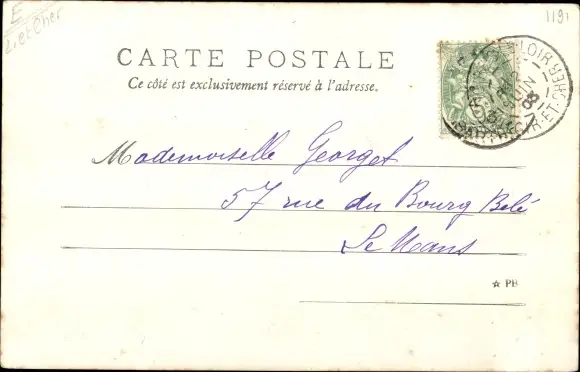 E
L. et Cher
1191
CARTE POSTALE
Ce côté est exclusivement réservé à l'adresse.
LOIR-ET-CHER
JUIN
Mademoiselle Georget
57 rue du Bourg Belé
Le Mans
☆ PH